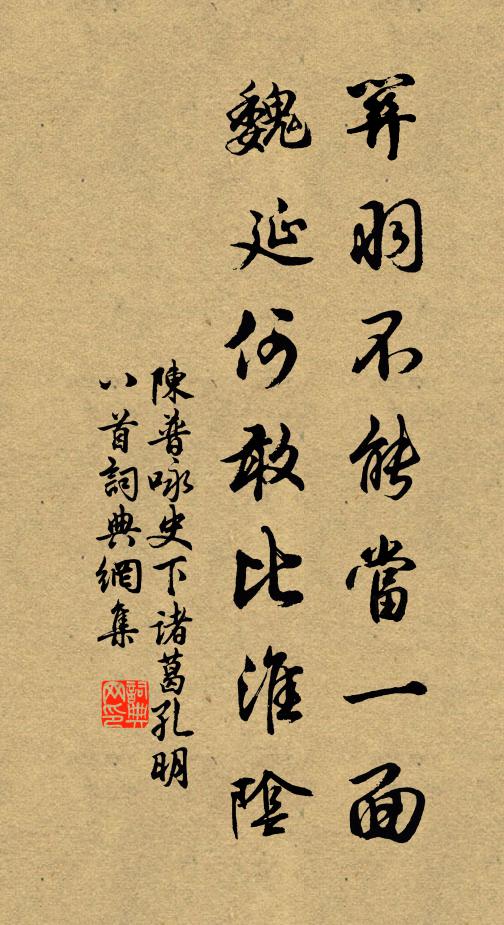 關羽不能當一面
魏延何敢比淮陰
陳普詠史下諸葛孔明
八首詞典網集
詞典
网印